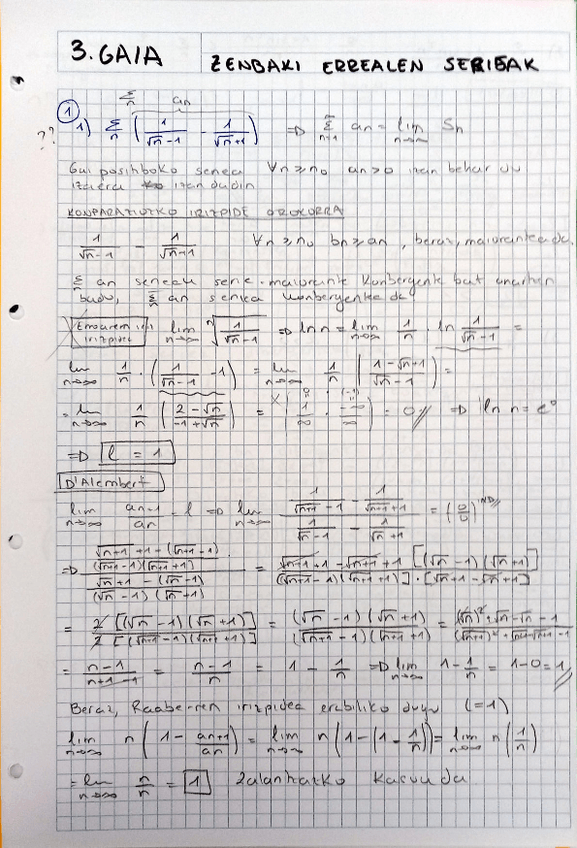 3. GAIA
ZENBAKI ERREALEN SERIEAK
Σn an
① 1) Σn (1/(√n-1) - 1/(√n+1)) ⇒ Σn=1 an = lim n→∞ Sn
??
Gai positiboko seriea ∀n≥n₀ an>0 izan behar du
izaera izan dadin
KONPARAZIOZKO IRIZPIDE OROKORRA
1/(√n-1) - 1/(√n+1) ∀n≥n₀ bn≥an, beraz, maiorantea da.
Σn an serieak serie maiorante konbergente bat onartzen
badu, Σn an seriea konbergentea da
Erroaren irizpidea lim n→∞ ⁿ√(1/(√n-1)) ⇒ ln n = lim n→∞ 1/n · ln 1/(√n-1) =
lim n→∞ 1/n · (1/(√n-1) - 1) = lim n→∞ 1/n (1-√n+1)/(√n-1) =
= lim n→∞ 1/n (2-√n)/(-1+√n) = (1/∞ · -∞/∞) = 0 ⇒ ln n = e⁰
⇒ l = 1
D'Alembert
lim n→∞ an-1/an = l ⇒ lim n→∞ (1/(√(n+1)-1) - 1/(√(n+1)+1))/(1/(√n-1) - 1/(√n+1)) = (0/0) IND
⇒ ((√(n+1)+1-(√(n+1)-1))/((√(n+1)-1)(√(n+1)+1)))/((√n+1-(√n-1))/((√n-1)(√n+1))) = (√(n+1)+1-√(n+1)+1 [(√n-1)(√n+1)])/((√(n+1)-1)(√(n+1)+1)]·[√n+1-√n+1])
= 2[(√n-1)(√n+1)]/2[(√(n+1)-1)(√(n+1)+1)] = (√n-1)(√n+1)/(√(n+1)-1)(√(n+1)+1) = ((√n)²+√n-√n-1)/((√(n+1))²+√(n+1)-√(n+1)-1)
= (n-1)/(n+1-1) = (n-1)/n = 1 - 1/n ⇒ lim n→∞ 1-1/n = 1-0 = 1
Beraz, Raabe-ren irizpidea erabiliko dugu (l=1)
lim n→∞ n(1 - an+1/an) = lim n→∞ n(1-(1-1/n)) = lim n→∞ n(1/n)
= lim n→∞ n/n = 1 Zalantzazko kasua da